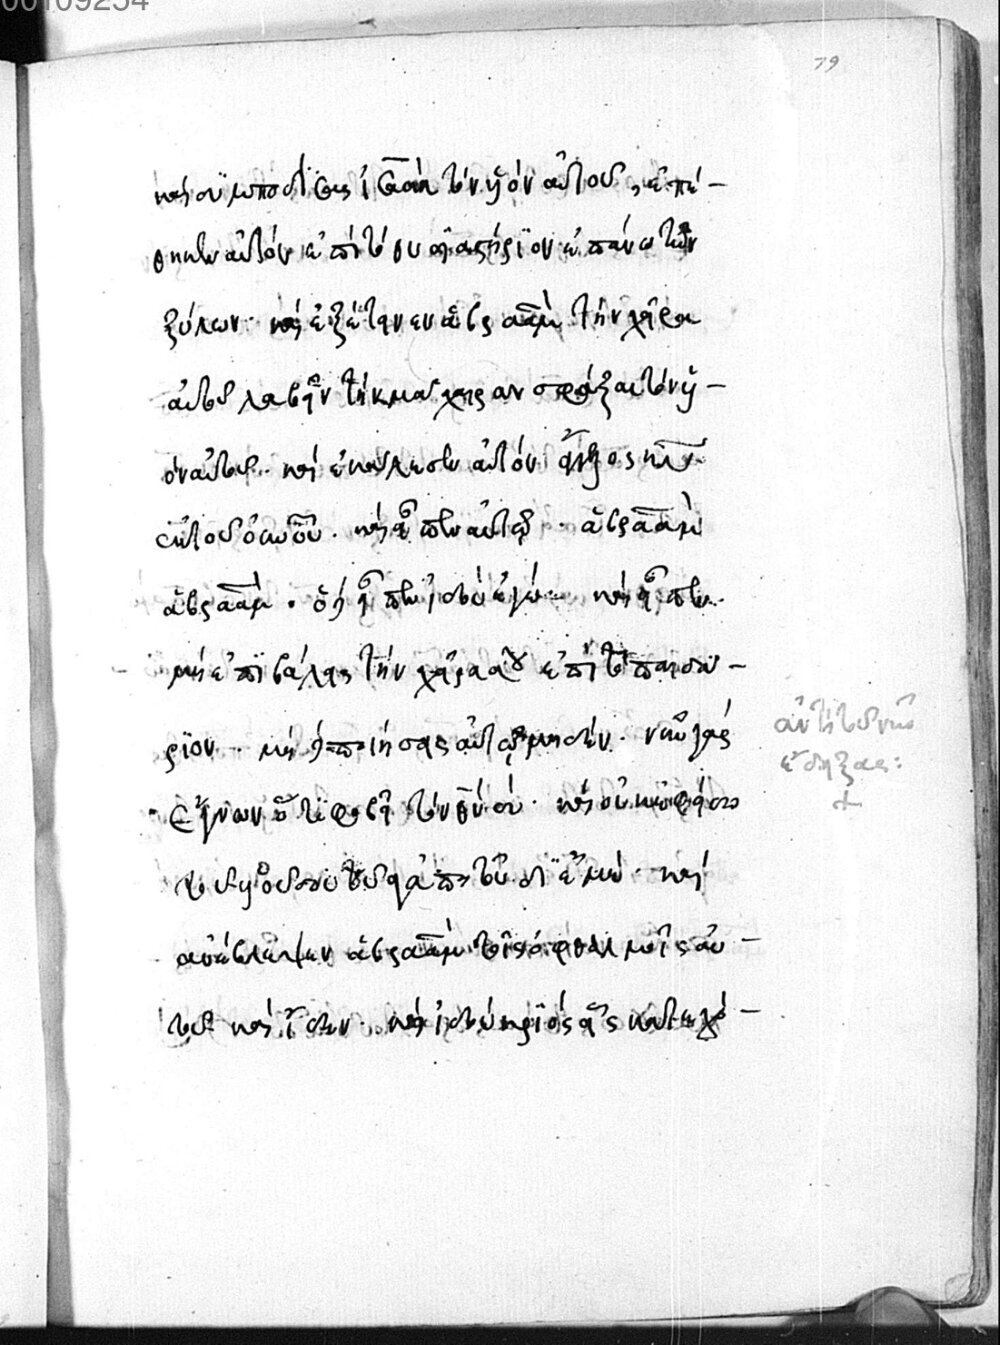 00109254
79
καὶ συμποδίσας ἰσαὰκ τὸν υἱὸν αὐτοῦ, ἐπέ-
θηκεν αὐτὸν ἐπὶ τὸ θυσιαστήριον ἐπάνω τῶν
ξύλων. καὶ ἐξέτεινεν ἀβραὰμ τὴν χεῖρα
αὐτοῦ λαβεῖν τὴν μάχαιραν σφάξαι τὸν υἱ-
ὸν αὐτοῦ. καὶ ἐκάλεσεν αὐτὸν ἄγγελος κυ
ἐκ τοῦ οὐνοῦ. καὶ εἶπεν αὐτῷ. ἀβραὰμ
ἀβραάμ. ὁ δὲ εἶπεν ἰδοὺ ἐγώ. καὶ εἶπεν.
μὴ ἐπιβάλῃς τὴν χεῖρα σου ἐπὶ τὸ παιδά-
ριον. μὴ δὲ ποιήσῃς αὐτῷ μηδέν. νῦν γὰρ
ἔγνων ὅτι φοβῇ τὸν θν σύ. καὶ οὐκ ἐφείσω
τοῦ υἱοῦ σου τοῦ ἀγαπητοῦ δι' ἐμέ. καὶ
ἀναβλέψας ἀβραὰμ τοῖς ὀφθαλμοῖς αὐ-
τοῦ καὶ εἶδεν. καὶ ἰδοὺ κριὸς εἷς κατεχό-
ἀντὶ τοῦ νῦν
ἔδειξας:
+